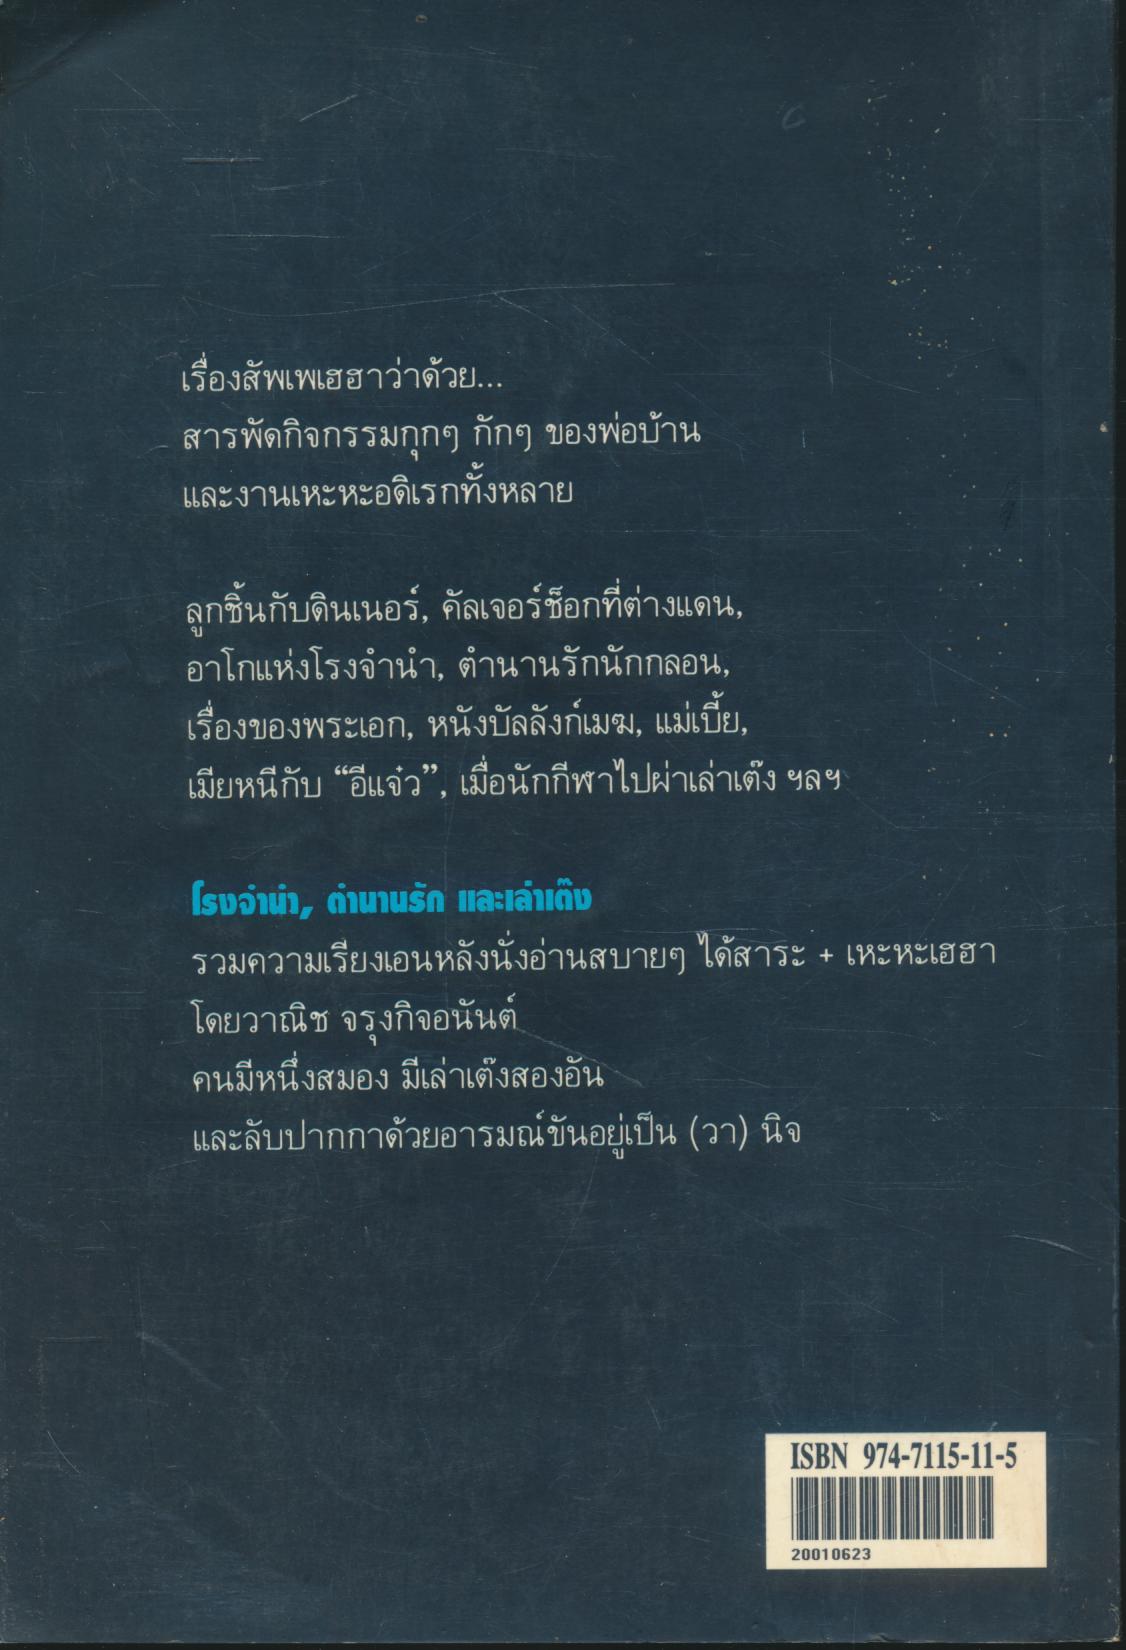 เรื่องสัพเพเฮฮาว่าด้วย...
สารพัดกิจกรรมกุกๆ กักๆ ของพ่อบ้าน
และงานเหะหะอดิเรกทั้งหลาย
ลูกชิ้นกับดินเนอร์, คัลเจอร์ช็อกที่ต่างแดน,
อาโกแห่งโรงจำนำ, ตำนานรักนักกลอน,
เรื่องของพระเอก, หนังบัลลังก์เมฆ, แม่เบี้ย,
เมียหนีกับ “อีแจ๋ว”, เมื่อนักกีฬาไปผ่าเล่าเต๊ง ฯลฯ
โรงจำนำ, ตำนานรัก และเล่าเต๊ง
รวมความเรียงเอนหลังนั่งอ่านสบายๆ ได้สาระ + เหะหะเฮฮา
โดยวาณิช จรุงกิจอนันต์
คนมีหนึ่งสมอง มีเล่าเต๊งสองอัน
และลับปากกาด้วยอารมณ์ขันอยู่เป็น (วา) นิจ
ISBN 974-7115-11-5
20010623